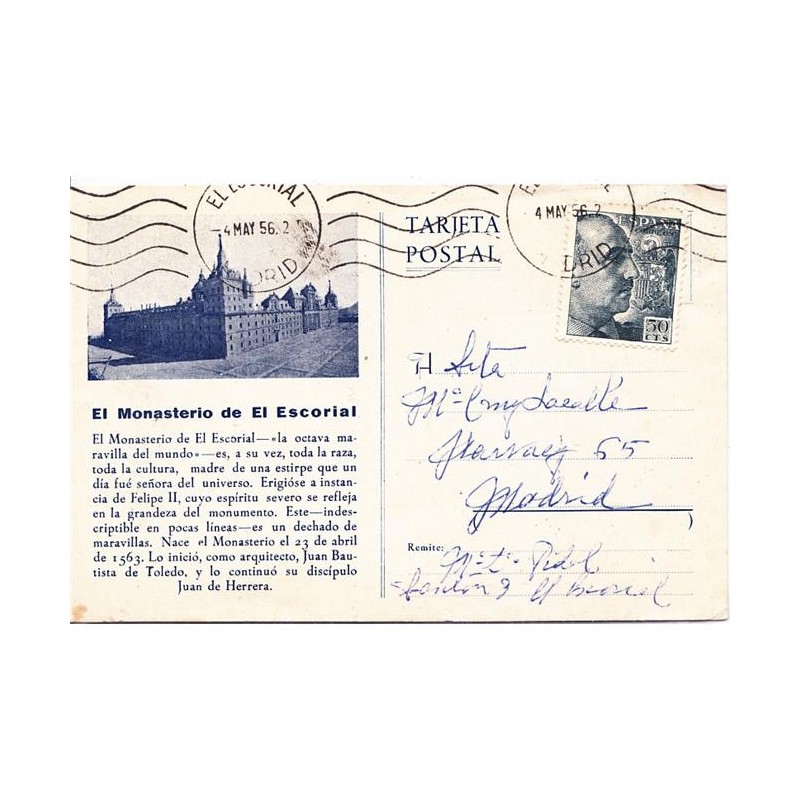 EL ESCORIAL
-4 MAY 56. 2
MADRID
4 MAY 56. 2
MADRID
TARJETA
POSTAL
ESPAÑA
50
CTS
El Monasterio de El Escorial
El Monasterio de El Escorial—«la octava ma-
ravilla del mundo»—es, a su vez, toda la raza,
toda la cultura, madre de una estirpe que un
día fué señora del universo. Erigióse a instan-
cia de Felipe II, cuyo espíritu severo se refleja
en la grandeza del monumento. Este—indes-
criptible en pocas líneas—es un dechado de
maravillas. Nace el Monasterio el 23 de abril
de 1563. Lo inició, como arquitecto, Juan Bau-
tista de Toledo, y lo continuó su discípulo
Juan de Herrera.
Srta
Mª Cruz
Narvaez 65
Madrid
)
Remite: Mª Tª Vidal
9 El Escorial